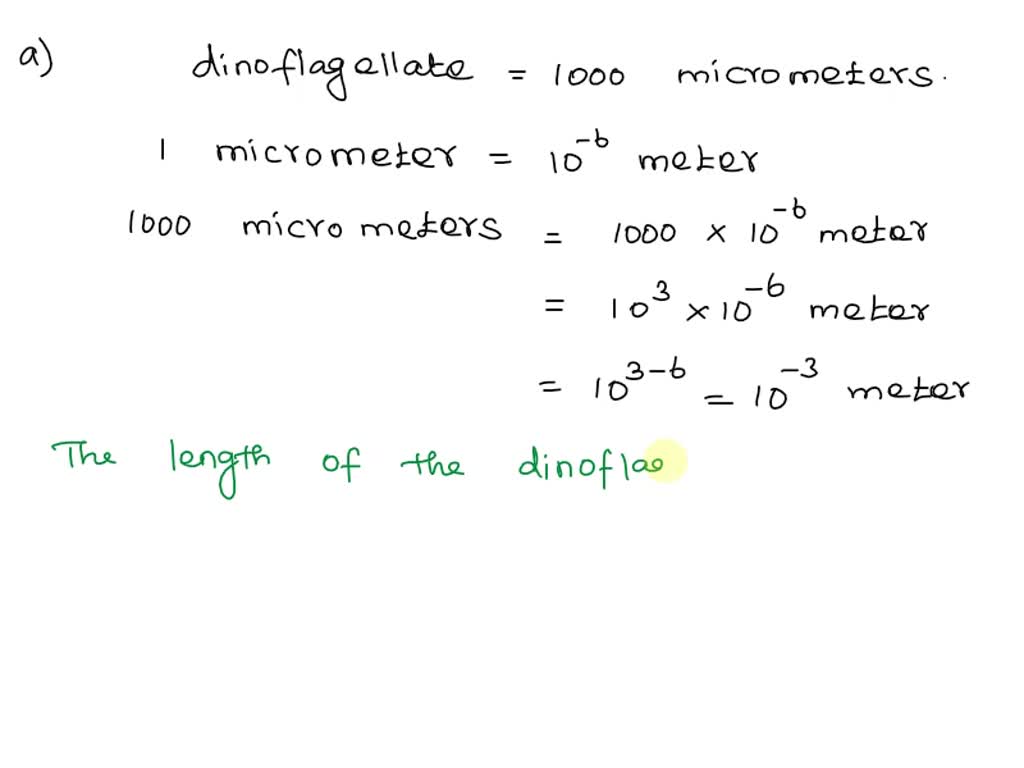 a) dinoflagellate = 1000 micrometers.
1 micrometer = 10⁻⁶ meter
1000 micro meters = 1000 × 10⁻⁶ meter
= 10³ × 10⁻⁶ meter
= 10³⁻⁶ = 10⁻³ meter
The length of the dinofla